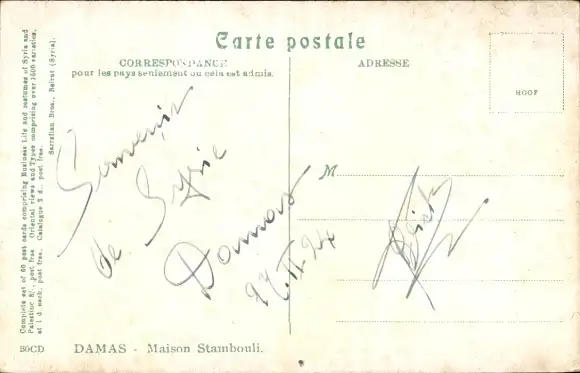 Carte postale
CORRESPONDANCE
pour les pays seulement ou cela est admis.
ADRESSE
HOOF
M
Souvenir
de Syrie
Damas
Complete set of 60 post cards comprising Business Life and costumes of Syria and
Palestine 8/-, post free. Oriental views and Types comprising over 1600 varieties,
at 1 d. each, post free. Catalogue 3 d., post free.
Sarrafian Bros., Beirut (Syria).
80CD DAMAS - Maison Stambouli.